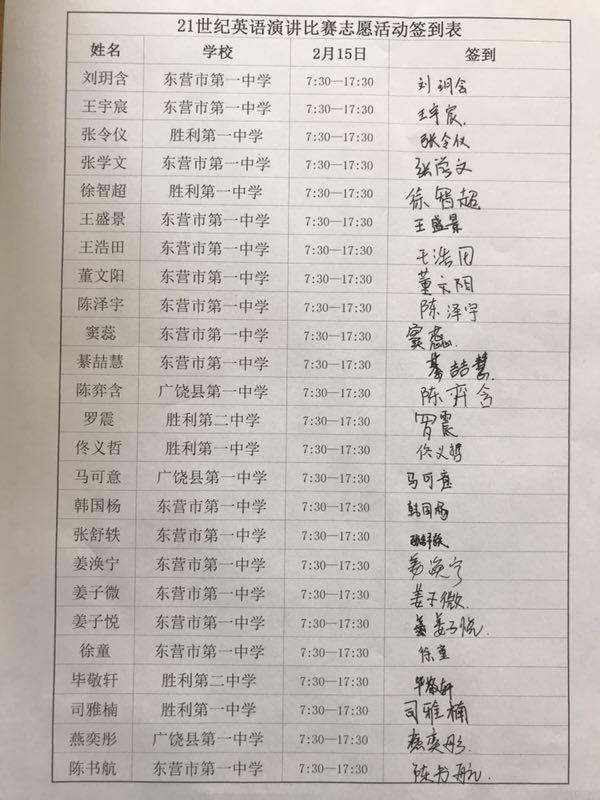 21世纪英语演讲比赛志愿活动签到表
姓名 学校 2月15日 签到
刘玥含 东营市第一中学 7:30—17:30 刘玥含
王宇宸 东营市第一中学 7:30—17:30 王宇宸.
张令仪 胜利第一中学 7:30—17:30 张令仪
张学文 东营市第一中学 7:30—17:30 张学文
徐智超 胜利第一中学 7:30—17:30 徐智超
王盛景 东营市第一中学 7:30—17:30 王盛景
王浩田 东营市第一中学 7:30—17:30 王浩田
董文阳 东营市第一中学 7:30—17:30 董文阳
陈泽宇 东营市第一中学 7:30—17:30 陈泽宇
窦蕊 东营市第一中学 7:30—17:30 窦蕊
綦喆慧 东营市第一中学 7:30—17:30 綦喆慧.
陈弈含 广饶县第一中学 7:30—17:30 陈弈含
罗震 胜利第二中学 7:30—17:30 罗震
佟义哲 胜利第一中学 7:30—17:30 佟义哲
马可意 广饶县第一中学 7:30—17:30 马可意
韩国杨 东营市第一中学 7:30—17:30 韩国杨
张舒轶 东营市第一中学 7:30—17:30 张舒轶
姜涣宁 东营市第一中学 7:30—17:30 姜涣宁
姜子微 东营市第一中学 7:30—17:30 姜子微.
姜子悦 东营市第一中学 7:30—17:30 姜子悦.
徐童 东营市第一中学 7:30—17:30 徐童
毕敬轩 胜利第二中学 7:30—17:30 毕敬轩
司雅楠 胜利第一中学 7:30—17:30 司雅楠
燕奕彤 广饶县第一中学 7:30—17:30 燕奕彤
陈书航 东营市第一中学 7:30—17:30 陈书航